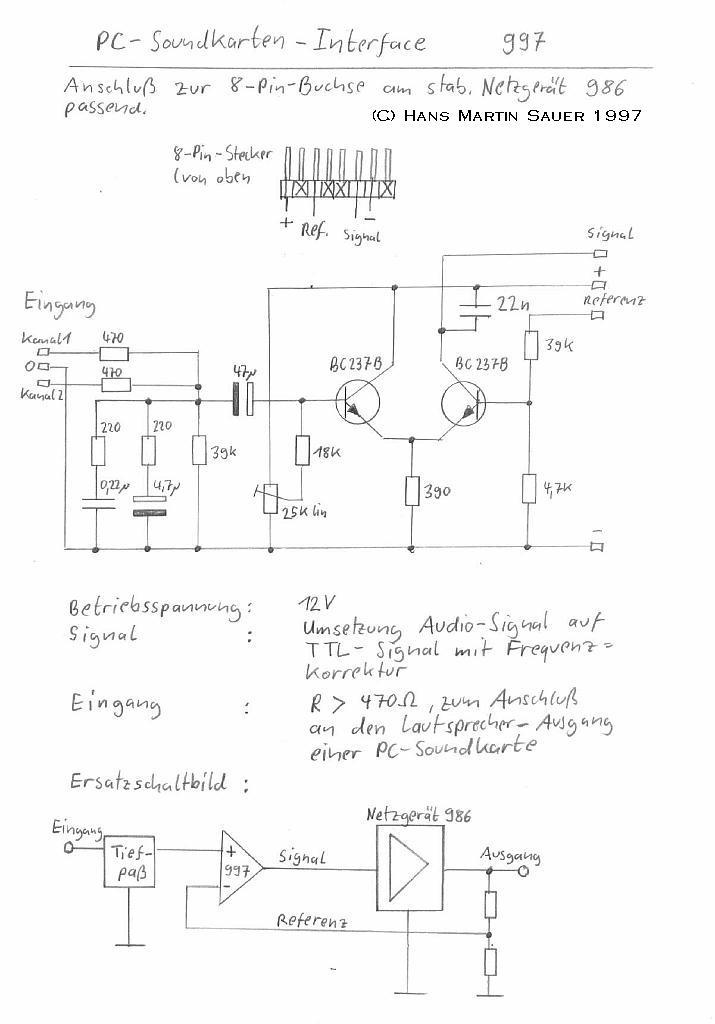 PC-Soundkarten-Interface 997
Anschluß zur 8-Pin-Buchse am stab. Netzgerät 986
passend.
(C) Hans Martin Sauer 1997
8-Pin-Stecker
(von oben
+ Ref. Signal -
Signal
+
Referenz
22n
39k
Eingang
Kanal 1
470
0
470
Kanal 2
47µ
BC237B
BC237B
220
220
39k
18k
0,22µ
4,7µ
25k lin
390
4,7k
-
Betriebsspannung: 12V
Signal : Umsetzung Audio-Signal auf
TTL-Signal mit Frequenz=
korrektur
Eingang : R > 470Ω, zum Anschluß
an den Lautsprecher-Ausgang
einer PC-Soundkarte
Ersatzschaltbild:
Eingang
Tief-
paß
+
997
-
Signal
Netzgerät 986
Ausgang
Referenz